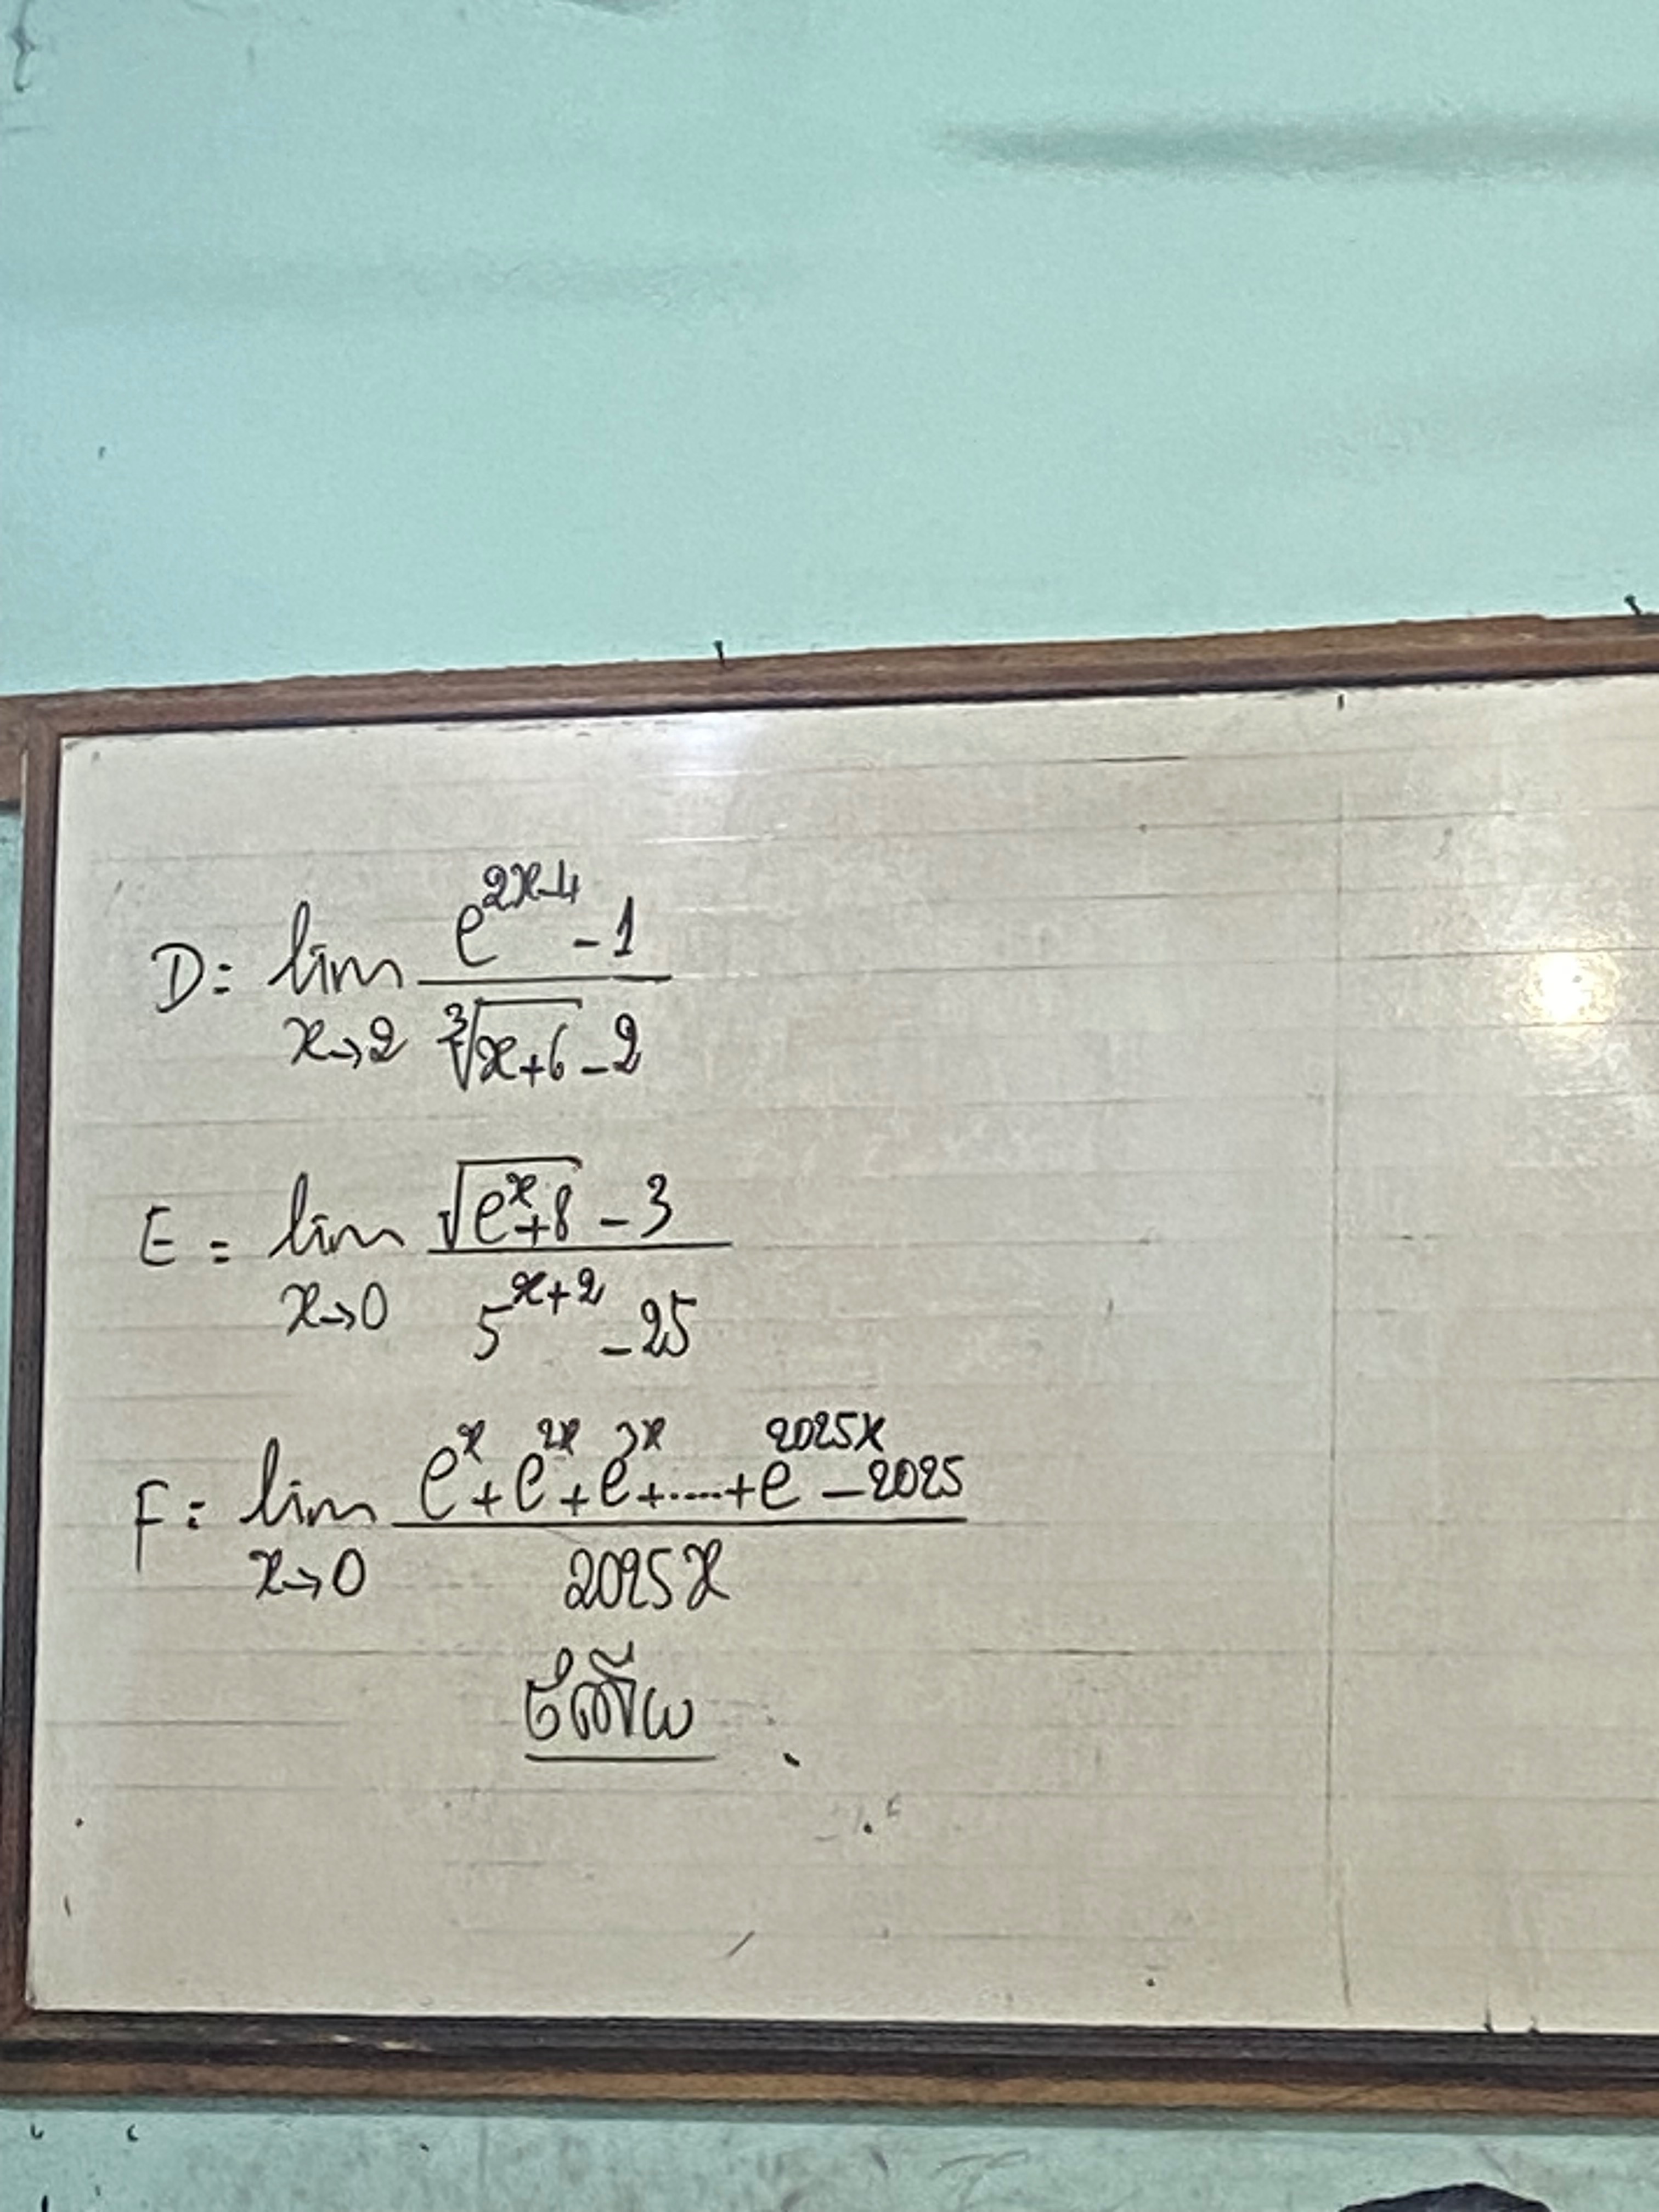 D = lim_{x→2} (e^{2x-4} - 1) / (∛(x+6) - 2)
E = lim_{x→0} (√(e^x+8) - 3) / (5^{x+2} - 25)
F = lim_{x→0} (e^x + e^{2x} + e^{3x} + ..... + e^{2025x} - 2025) / (2025x)